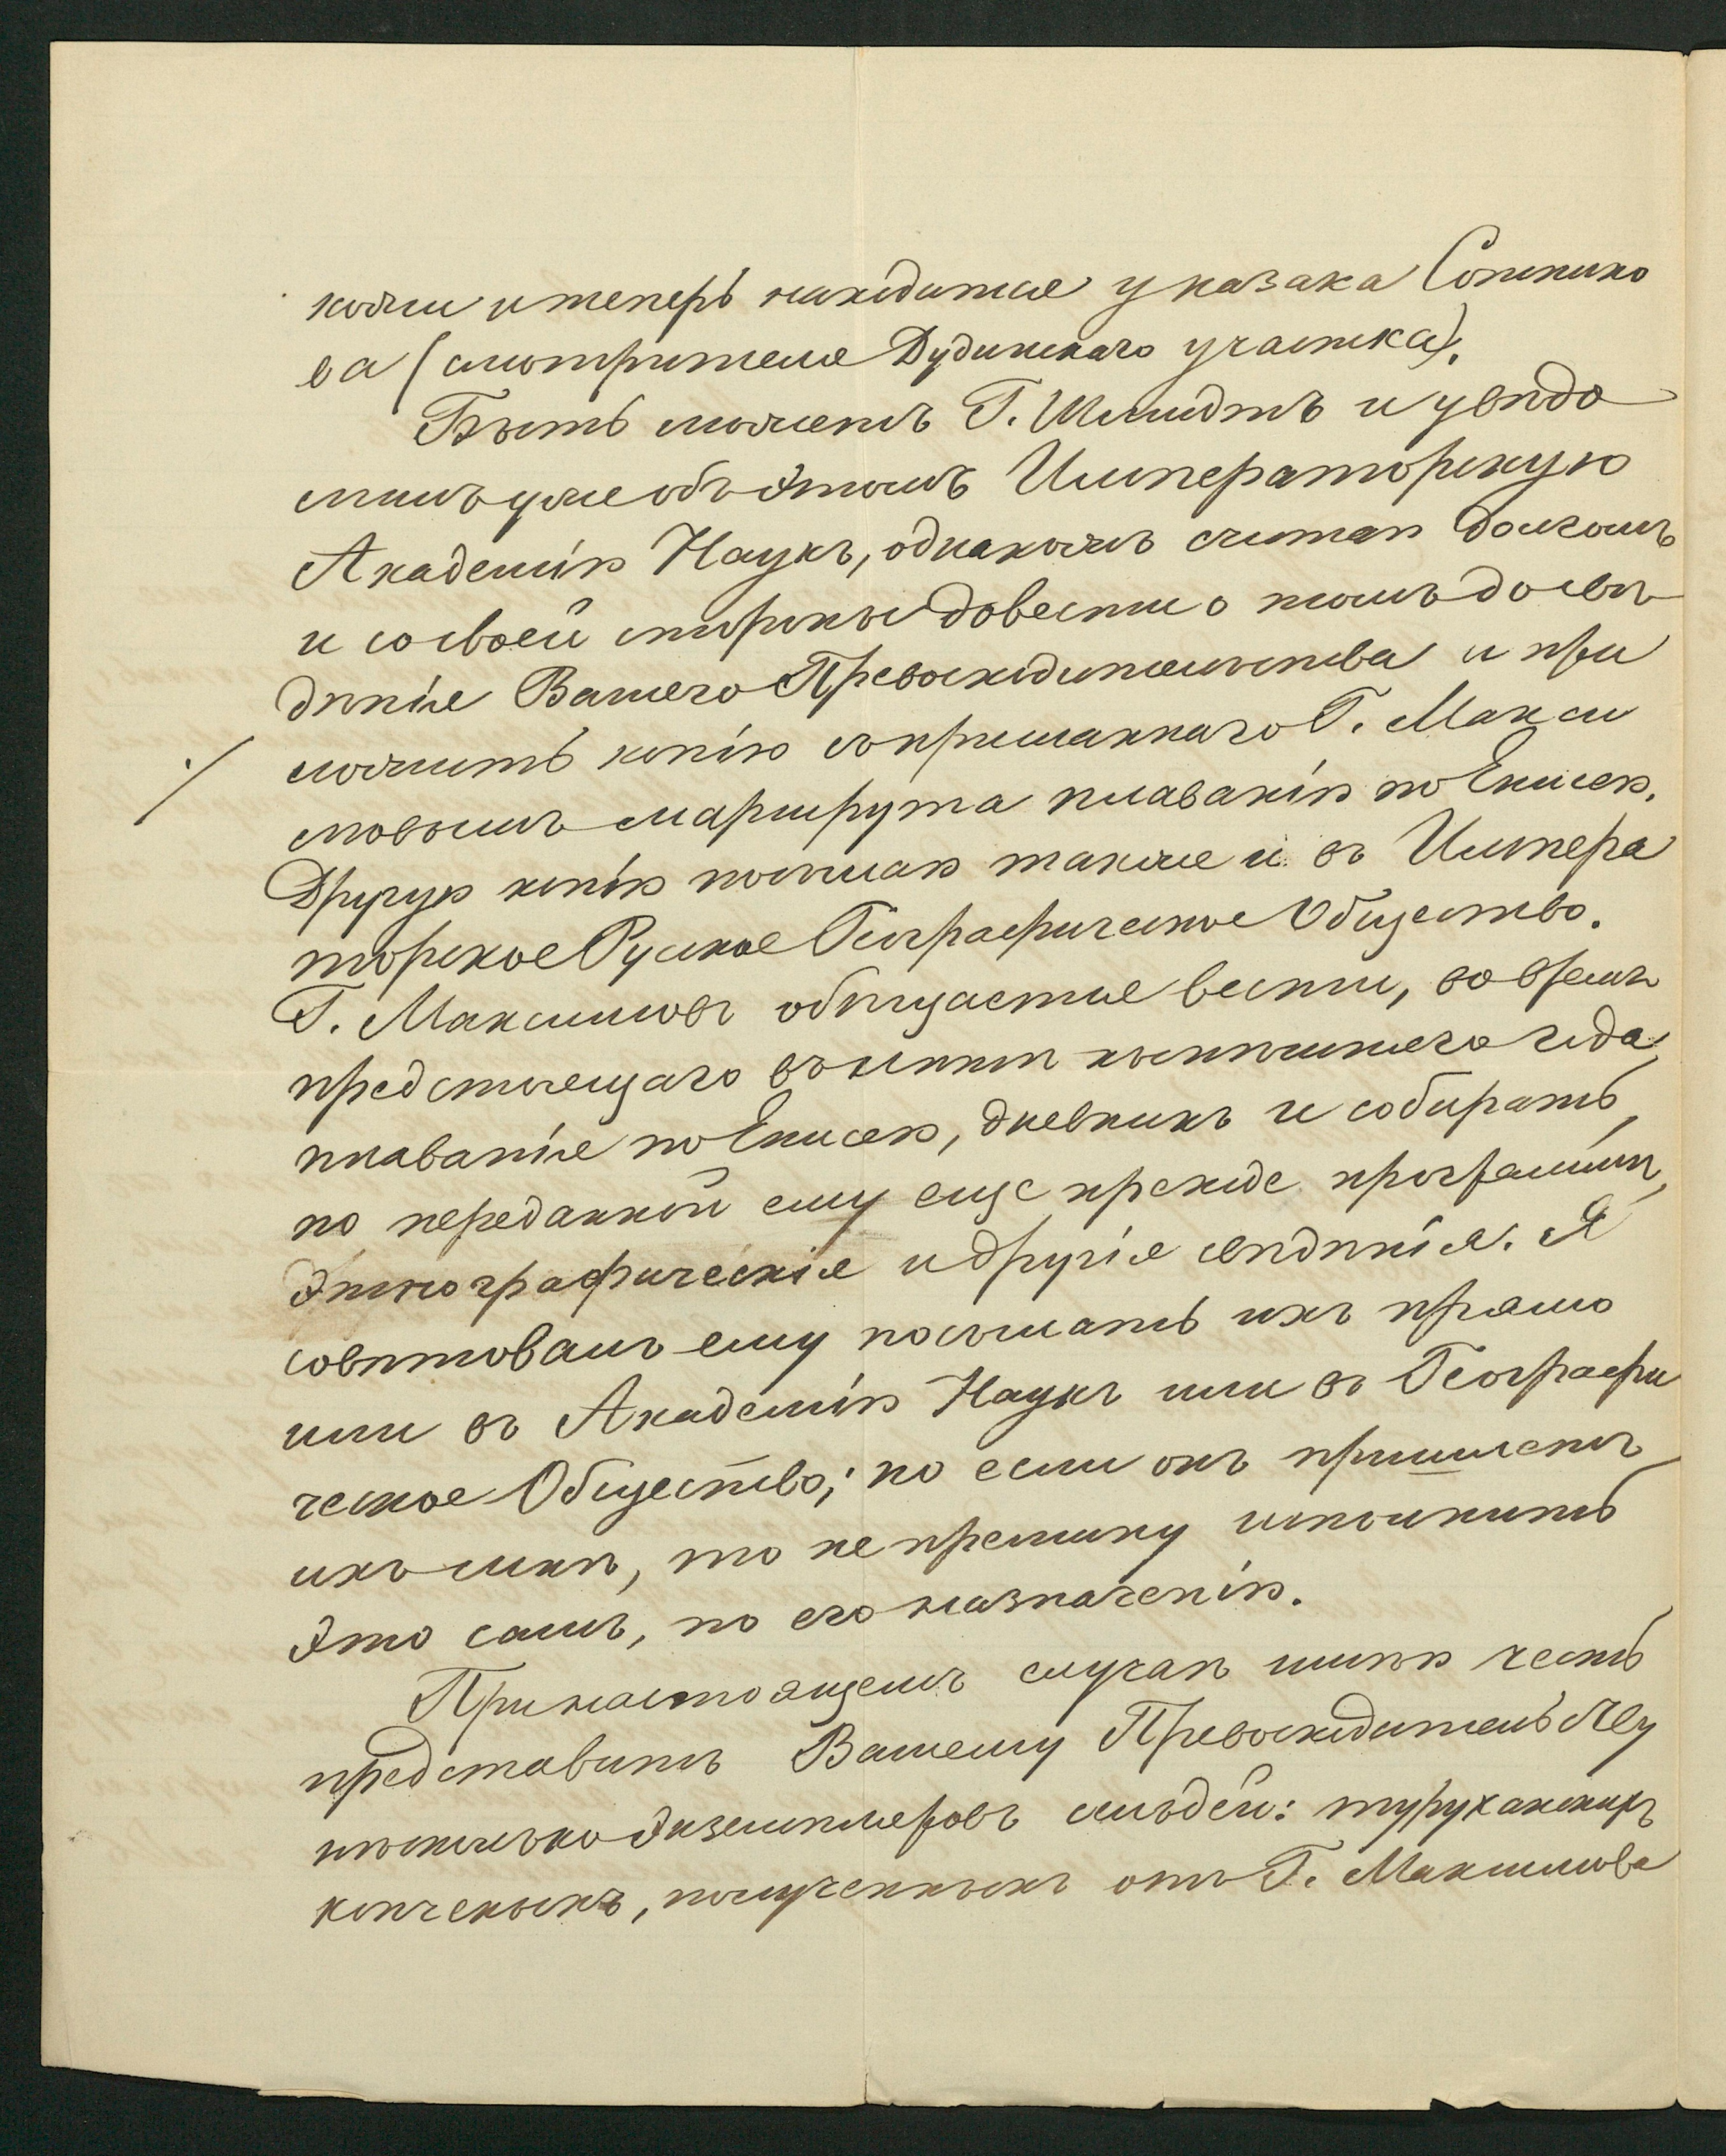 кожи и теперь находится у казака Сотнико
ва (смотрителя Дудинскаго участка).
Быть можетъ Г. Шмидтъ и увѣдо
милъ уже объ этомъ Императорскую
Академію Наукъ, однакожъ считаю долгомъ
и со своей стороны довести о томъ до свѣ
дѣнія Вашего Превосходительства и при
ложить копію съ присланнаго Г. Макси
мовымъ маршрута плаванія по Енисею.
Другую копію посылаю также и въ Импера
торское Руское Географическое Общество.
Г. Максимовъ обѣщается вести, во время
предстоящаго въ лѣтѣ нынѣшняго года,
плаванія по Енисею, дневникъ и собирать,
по переданной ему еще прежде программѣ,
этнографическія и другія свѣдѣнія. Я
совѣтовалъ ему посылать ихъ прямо
или въ Академію Наукъ или въ Географи
ческое Общество; но если онъ пришлетъ
ихъ мнѣ, то не премину исполнить
это самъ, по его назначенію.
При настоящемъ случаѣ имѣю честь
представить Вашему Превосходительству
нѣсколько экземпляровъ сельдей: туруханскихъ
копченыхъ, полученныхъ отъ Г. Максимова